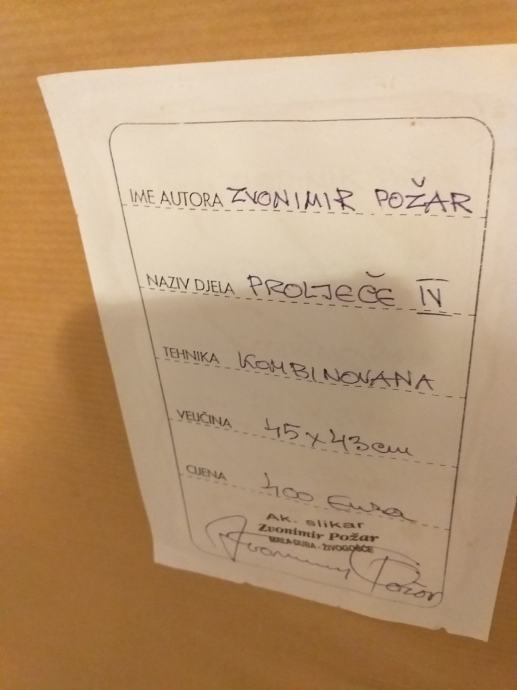 IME AUTORA ZVONIMIR POŽAR
NAZIV DJELA PROLJEČE IV
TEHNIKA KOMBINOVANA
VELIČINA 45x43cm
CIJENA 400 Eura
Ak. slikar
Zvonimir Požar
MALA DUBA - ŽIVOGOŠĆE
Zvonimir Požar